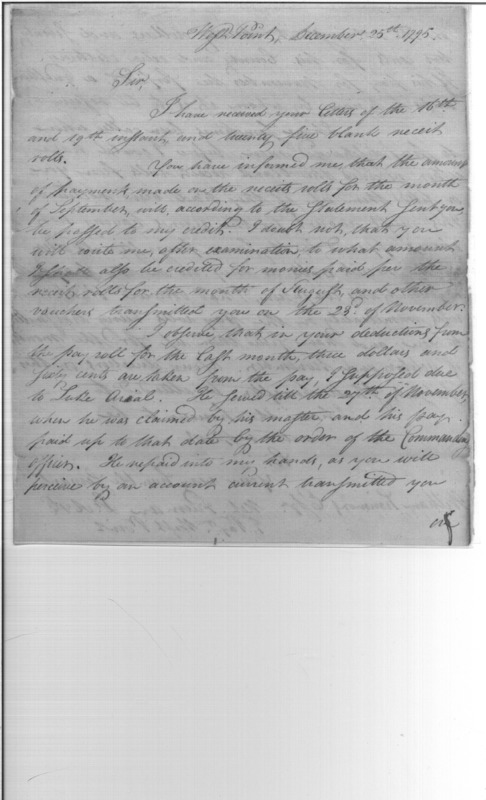 West Point, December 25th 1795.
Sir,
I have received your letters of the 16th
and 19th instant, and twenty five blank receit
rolls.
You have informed me that the amount
of payments made on the receits rolls for the month
of September, will according to the Statement sent you
be passed to my credit. I doubt not, that you
will write me, after examination, to what amount
I shall also be credited for monies paid per the
receit rolls for the month of August, and other
vouchers transmitted you on the 23d. of November.
I observe that in your deductions from
the pay roll for the last month, three dollars and
sixty cents are taken from the pay, I supposed due
to Luke . He served till the 27th. of November,
when he was claimed by his master and his pay
paid up to that date by the order of the Commanding
Officer. He repaid into my hands, as you will
perceive by an account current transmitted you
on